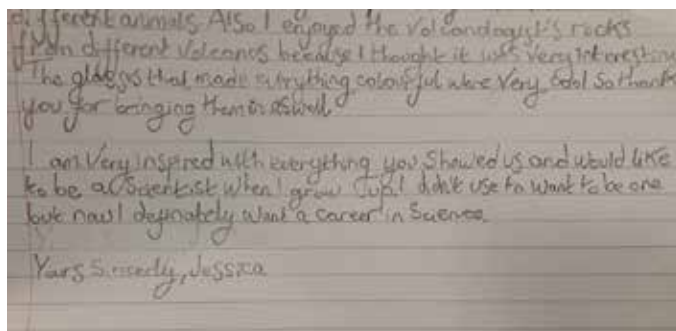 different animals. Also I enjoyed the Volcanologist's rocks
from different Volcanos because I thought it was very interesting
The glasses that made everything colourful were very cool so thank
you for bringing them in aswell.
I am very inspired with everything you showed us and would like
to be a Scientist when I grow up. I didn't use to want to be one
but now I definately want a career in Science.
Yours Sincerely, Jessica